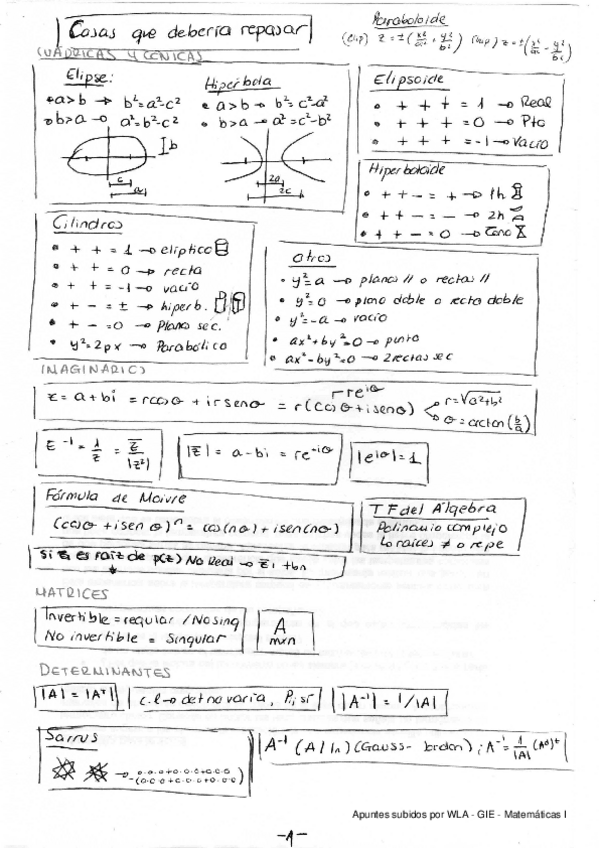 Cosas que debería repasar
Paraboloide
(Elip) z = ± (x²/a² + y²/b²) (hip) z = ± (x²/a² - y²/b²)
CUÁDRICAS Y CÓNICAS
Elipse:
• a>b → b² = a²-c²
• b>a → a² = b²-c²
b
c
a
Hipérbola
• a>b → b² = c²-a²
• b>a → a² = c²-b²
2a
2c
Elipsoide
• + + + = 1 → Real
• + + + = 0 → Pto
• + + + = -1 → Vacío
Hiperboloide
• + + - = + → 1h
• + + - = - → 2h
• + + - = 0 → Cono
Cilindros
• + + = 1 → elíptico
• + + = 0 → recta
• + + = -1 → vacío
• + - = ± → hiperb.
• + - = 0 → Plano sec.
• y² = 2px → Parabólico
otros
• y² = a → planos // o rectas //
• y² = 0 → plano doble o recta doble
• y² = -a → vacío
• ax² + by² = 0 → punto
• ax² - by² = 0 → 2 rectas sec
IMAGINARIOS
z = a + bi = r cos θ + i r sen θ = r (cos θ + i sen θ)
r e^iθ
r = √a²+b²
θ = arctan (b/a)
z⁻¹ = 1/z = z̅/|z²|
|z̅| = a - bi = re^-iθ
|e^iθ| = 1
Fórmula de Moivre
(cos θ + i sen θ)^n = cos(nθ) + i sen(nθ)
TF del Álgebra
Polinomio complejo
Lo raíces ≠ o repe
Si z es raíz de p(z) No Real → z̅, tbn
MATRICES
Invertible = regular / No sing
No invertible = Singular
A mxn
DETERMINANTES
|A| = |A^t|
c.l → det no varía, P, sí
|A⁻¹| = 1/|A|
Sarrus
A⁻¹ (A | In) (Gauss - Jordan) ; A⁻¹ = 1/|A| (Ad)^t
Apuntes subidos por WLA - GIE - Matemáticas I
-1-